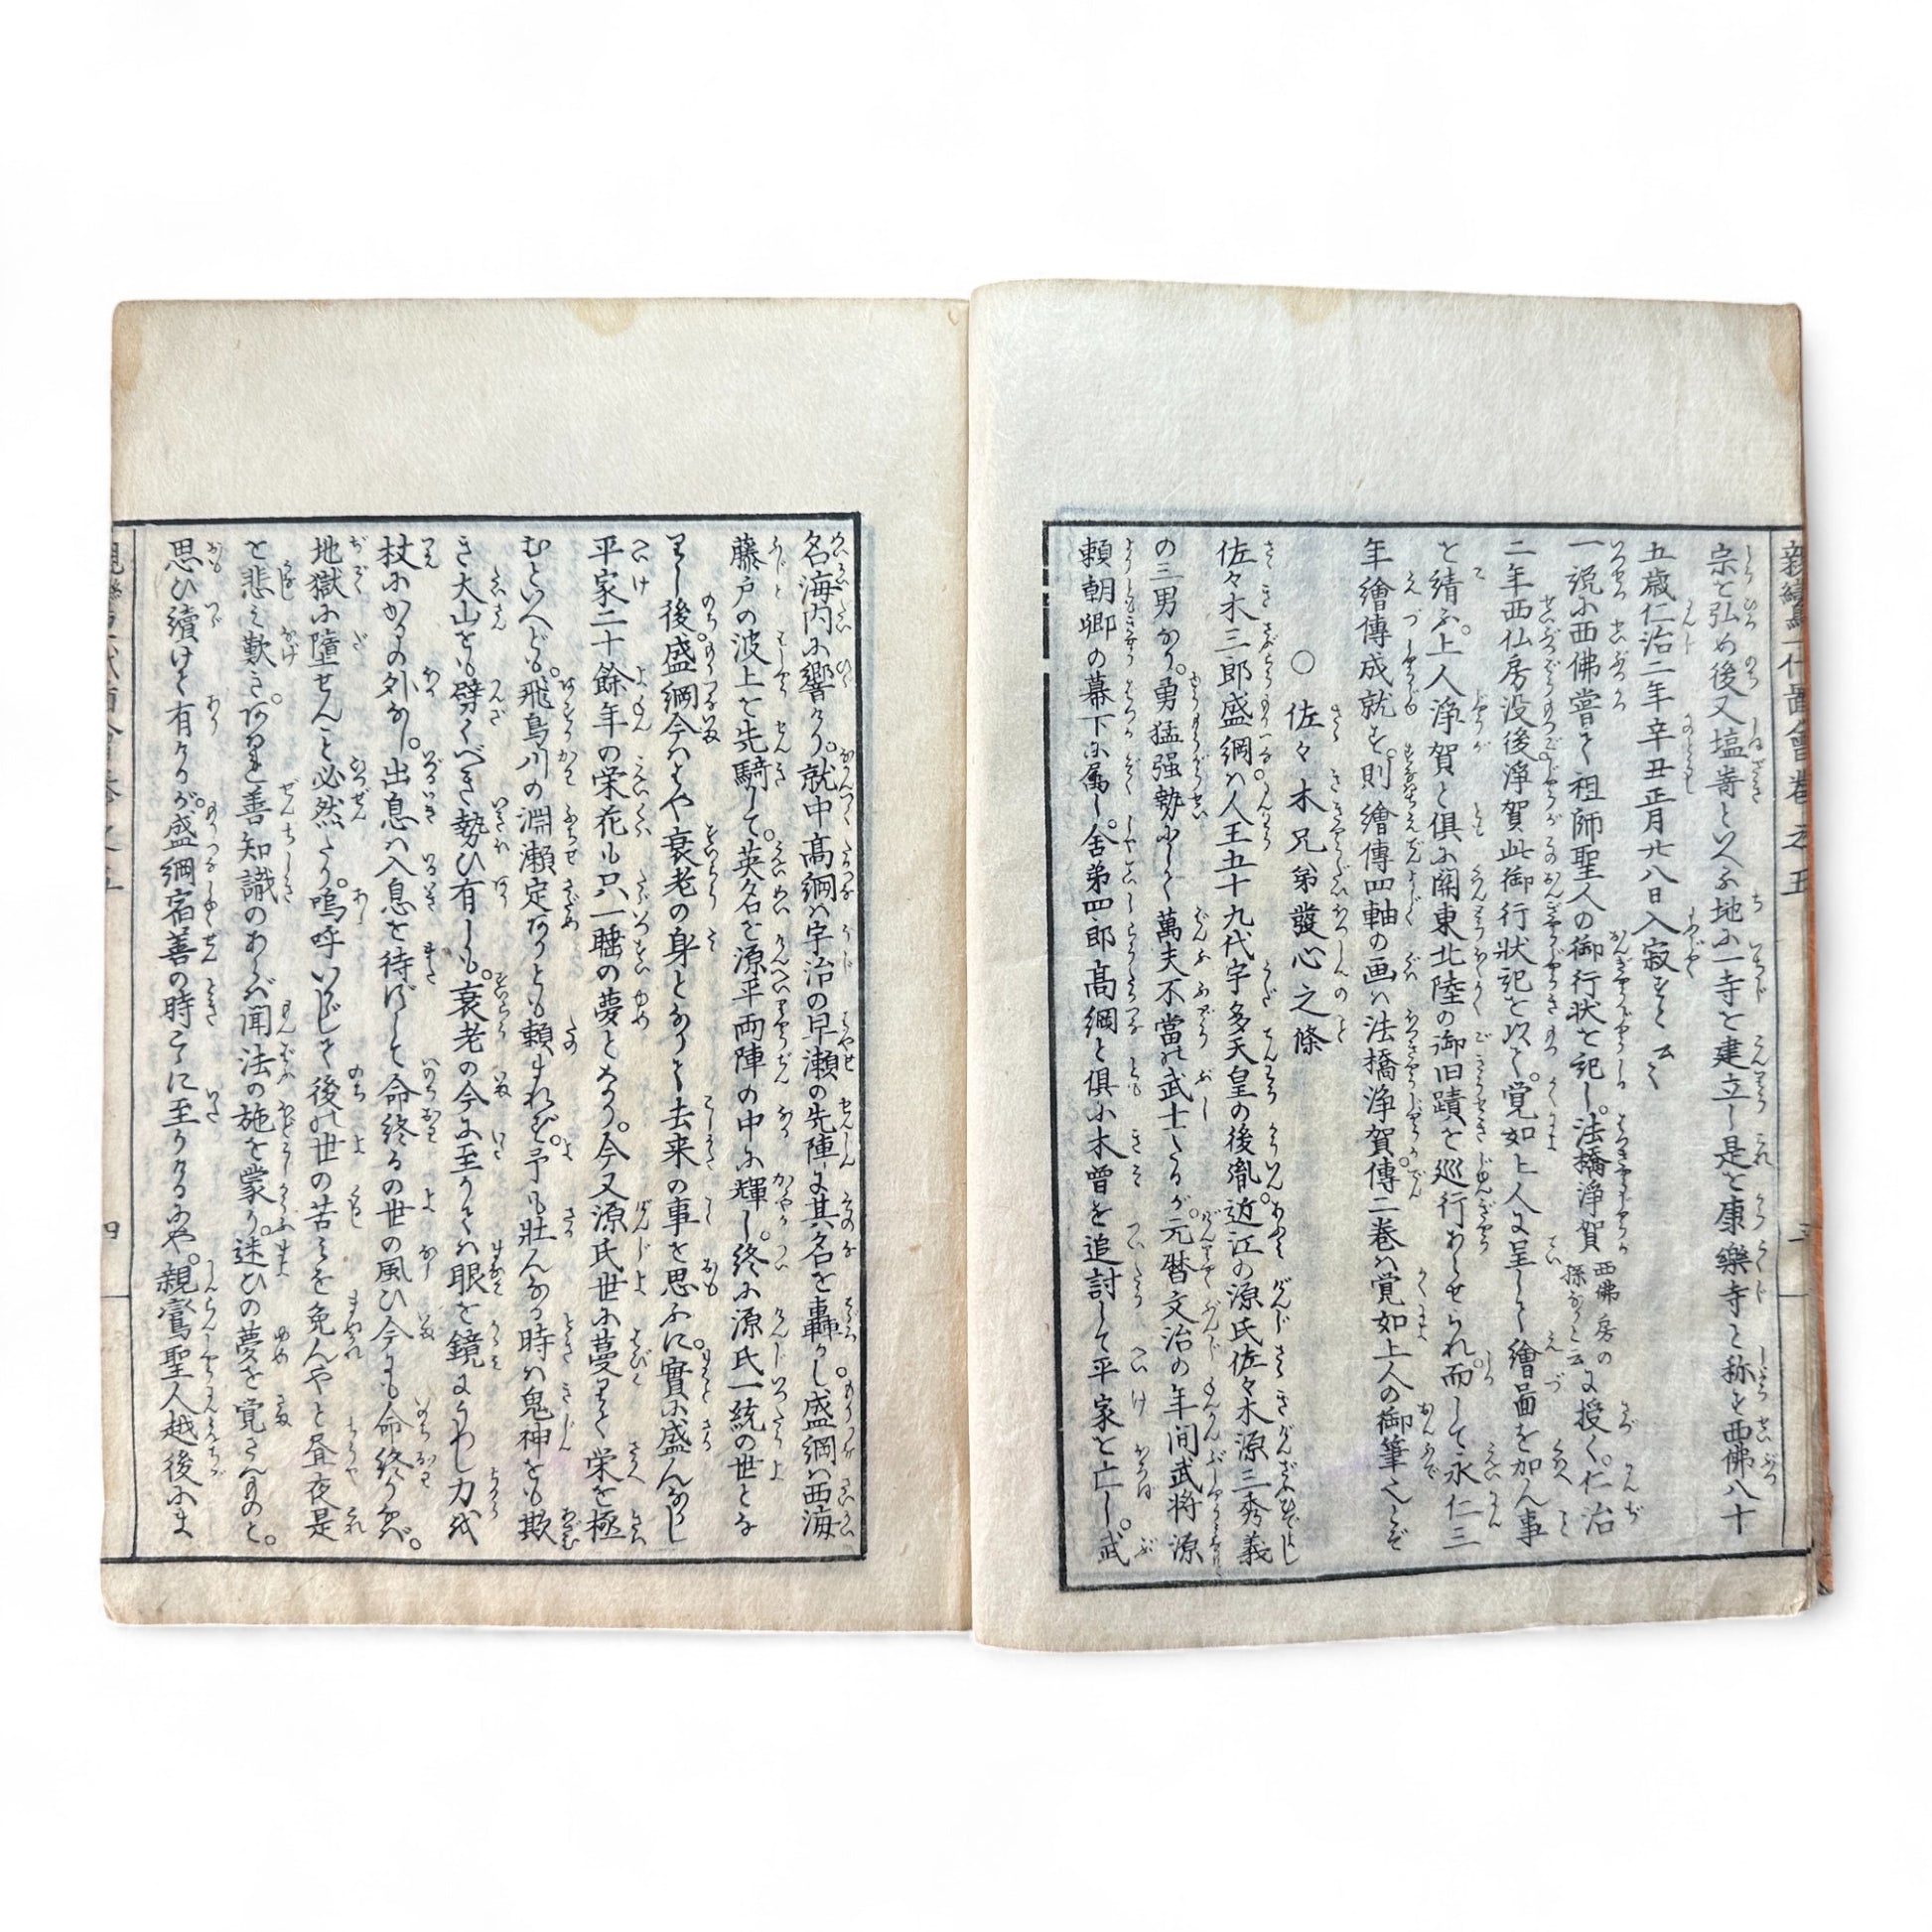 親鸞聖人御一代圖會巻之五
宗を弘め後又塩嵜といへる地に一寺を建立し是を康樂寺と称を西佛八十
五歳仁治二年辛丑正月廿八日入寂をと云々
一説に西佛嘗て祖師聖人の御行状を記し。法橋浄賀西佛房の孫なりと云に授く。仁治
二年西仏房没後浄賀此御行状記を以て。覚如上人に呈して繪圖を加ん事
を請ふ。上人浄賀と俱に関東北陸の御旧蹟を巡行あらせられ。而して永仁三
年繪傳成就を。則繪傳四軸の画ハ法橋浄賀。傳二巻ハ覚如上人の御筆也とぞ
○佐々木兄弟發心之條
佐々木三郎盛綱ハ人王五十九代宇多天皇の後胤。近江の源氏佐々木源三秀義
の三男なり。勇猛强勢にして萬夫不當の武士たるが。元暦文治の年間武将源
頼朝卿の幕下に属し。舎弟四郎髙綱と俱に木曽を追討して平家を亡し。武
名海内に響けり。就中髙綱ハ宇治の早瀬の先陣に其名を轟かし。盛綱ハ西海
藤戸の波上を先騎して。英名を源平両陣の中に輝し。終に源氏一統の世とな
りし後。盛綱今ハはや衰老の身となりて去来の事を思ふに。實に盛んなりし
平家二十餘年の栄花も只一睡の夢となり。今又源氏世に蔓りて栄を極
むといへども。飛鳥川の淵瀬定めなくとも頼まれず。予も壮んなる時ハ鬼神をも欺
き大山をも劈くべき勢ひ有しも。衰老の今に至りてハ眼を鏡にうつし力弐
杖にかゝるの外なし。出息ハ入息を待ずして命終るの世の風ひ今にも命終りなバ。
地獄に墮せんこと必然たり。嗚呼いかにして後の世の苦しみを免んやと昼夜是
を悲しみ歎き。あはれ善知識のあらバ聞法の施を蒙り。迷ひの夢を覚さんものと。
思ひ續けて有けるが。盛綱宿善の時こゝに至りけるにや。親鸞聖人越後にま
四